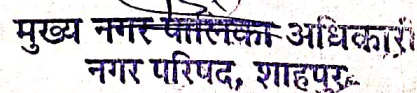 मुख्य नगर पालिका अधिकारी
नगर परिषद, शाहपुर